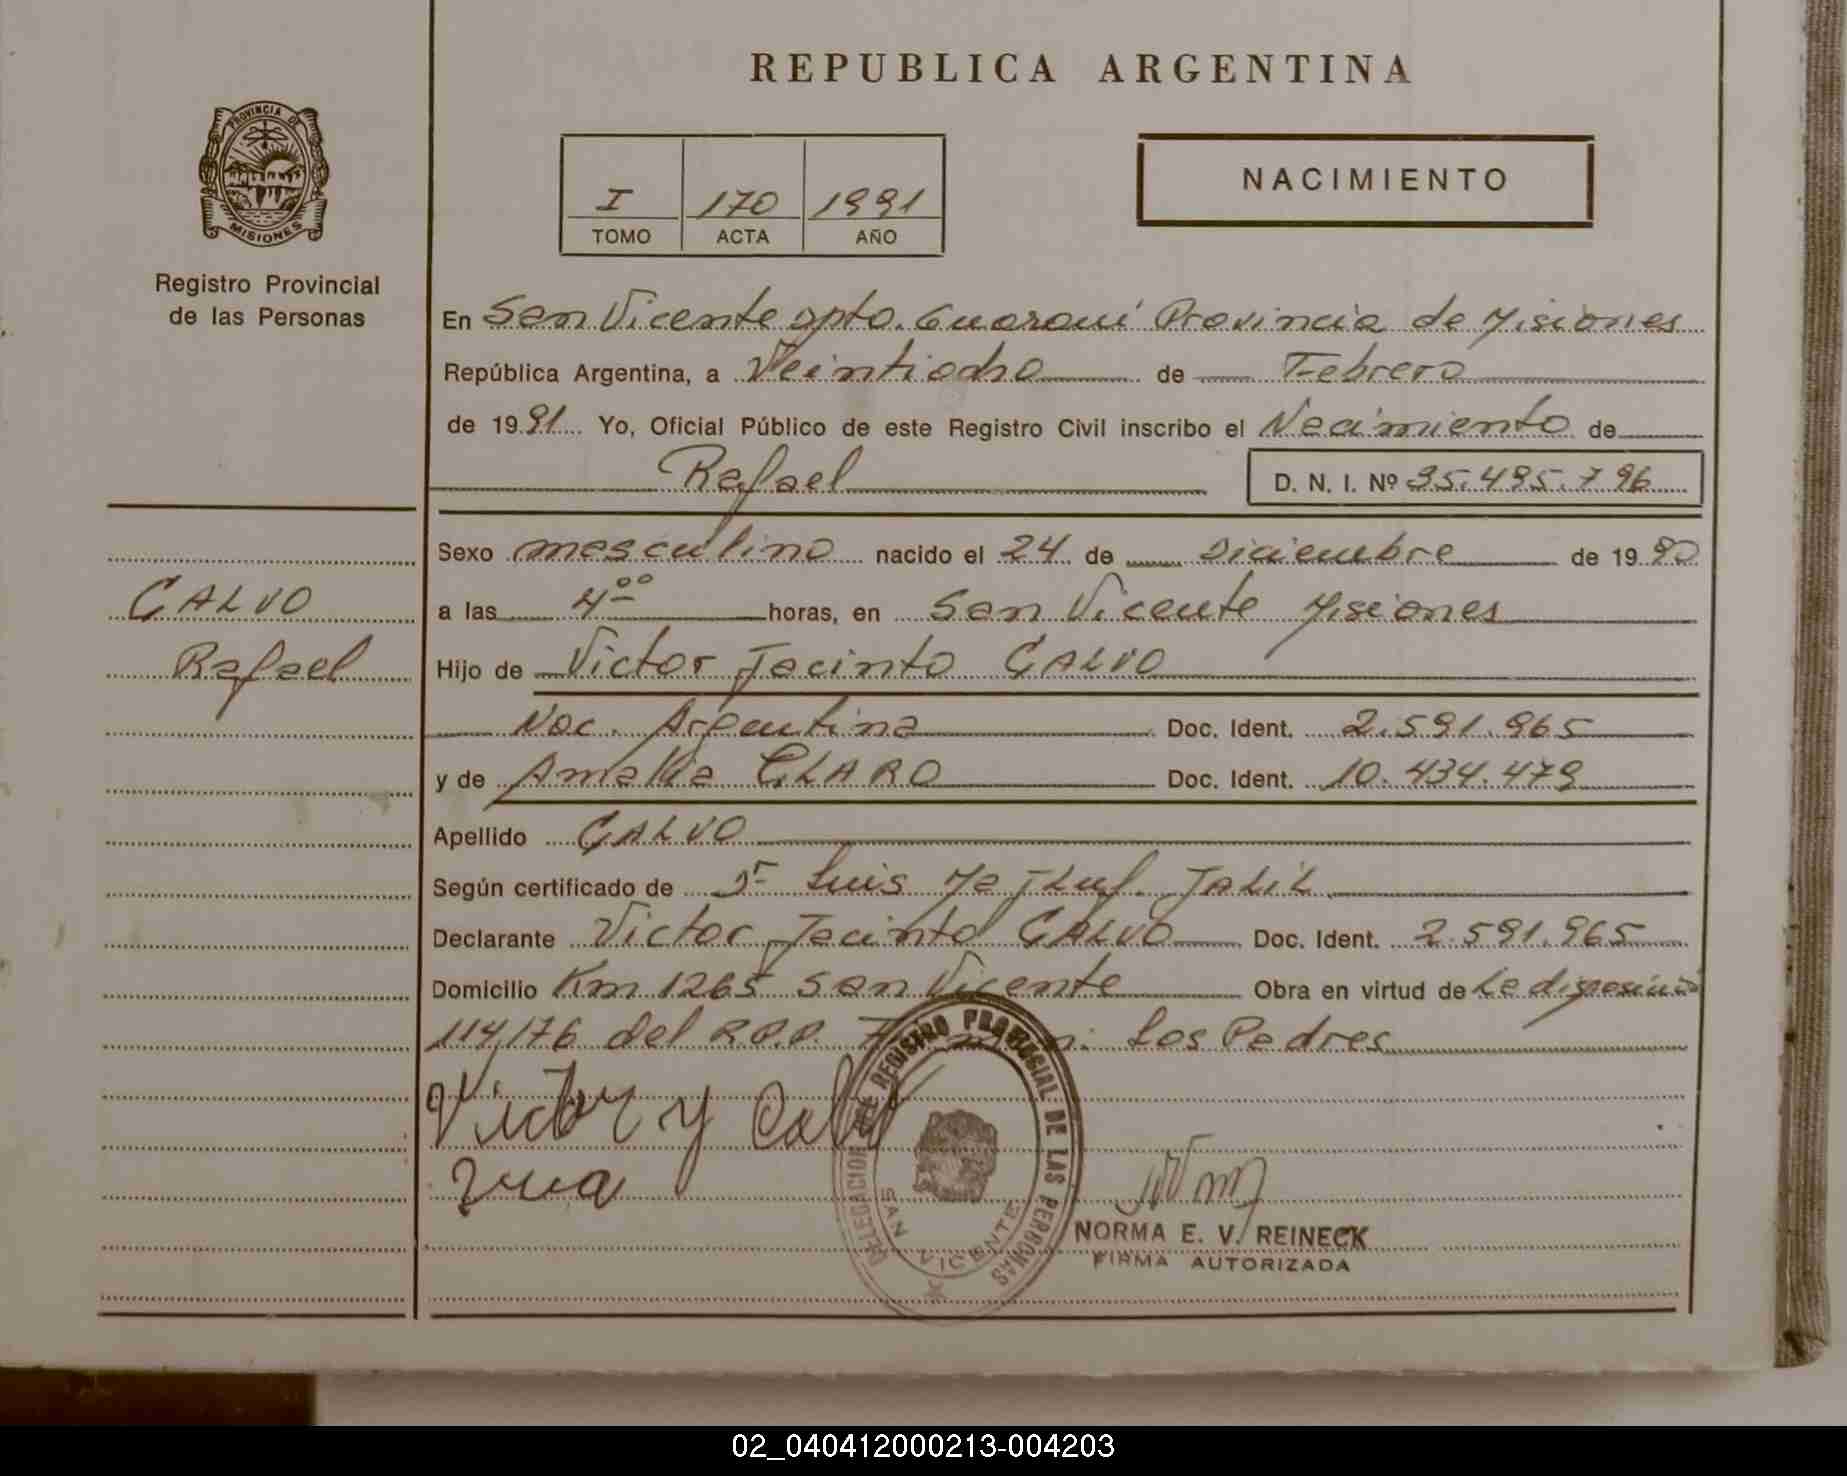 REPUBLICA ARGENTINA
PROVINCIA DE
MISIONES
Registro Provincial
de las Personas
I 170 1991
TOMO ACTA AÑO
NACIMIENTO
En San Vicente dpto. Guaraní Provincia de Misiones
República Argentina, a Veintiocho de Febrero
de 1991 Yo, Oficial Público de este Registro Civil inscribo el Nacimiento de
Rafael D. N. I. Nº 35.495.796
Sexo masculino nacido el 24 de Diciembre de 1990
CALVO
Rafael
a las 4°° horas, en San Vicente Misiones
Hijo de Victor Jacinto CALVO
Nac. Argentina Doc. Ident. 2.591.965
y de Amalia CLARO Doc. Ident. 10.434.479
Apellido CALVO
Según certificado de Dr Luis JALIL
Declarante Victor Jacinto CALVO Doc. Ident. 2.591.965
Domicilio Km 1265 San Vicente Obra en virtud de la disposición
114/76 del R.P.P. Firman: Los Padres
Victor J Calvo
DELEGACION DE REGISTRO PROVINCIAL DE LAS PERSONAS
SAN VICENTE
NORMA E. V. REINECK
FIRMA AUTORIZADA
02_040412000213-004203